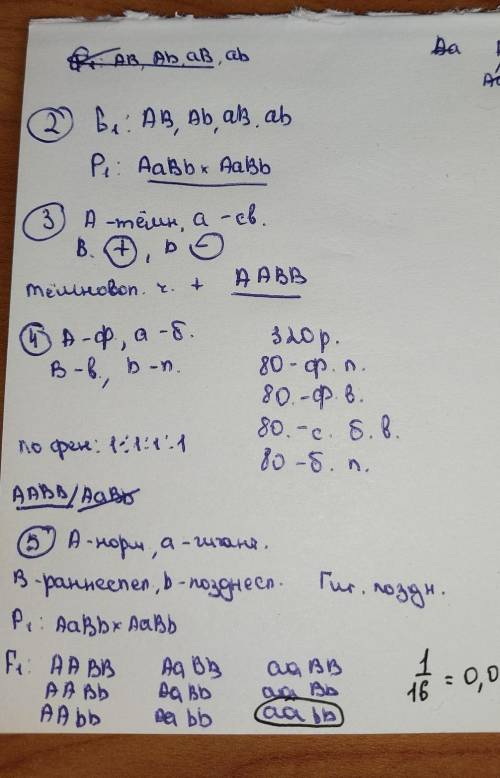 P₁: AB, Ab, aB, ab
Aa
2 G₁: AB, Ab, aB, ab
P₁: AaBb × AaBb
3 A - тёмн, a - св.
B. +, b -
темновол. ч. + AABB
4 A - ф., a - б. 320 р.
B - в., b - п. 80 - ф. п.
80. - ф. в.
80. - с. б. в.
по фен: 1:1:1:1 80 - б. п.
AABB/AaBb
5 A - норм, a - гигант.
B - раннеспел, b - позднесп. Гиг. поздн.
P₁: AaBb × AaBb
F₁: AABB AaBB aaBB 1/16 = 0,0
AABb AaBb aaBb
AAbb Aabb aabb